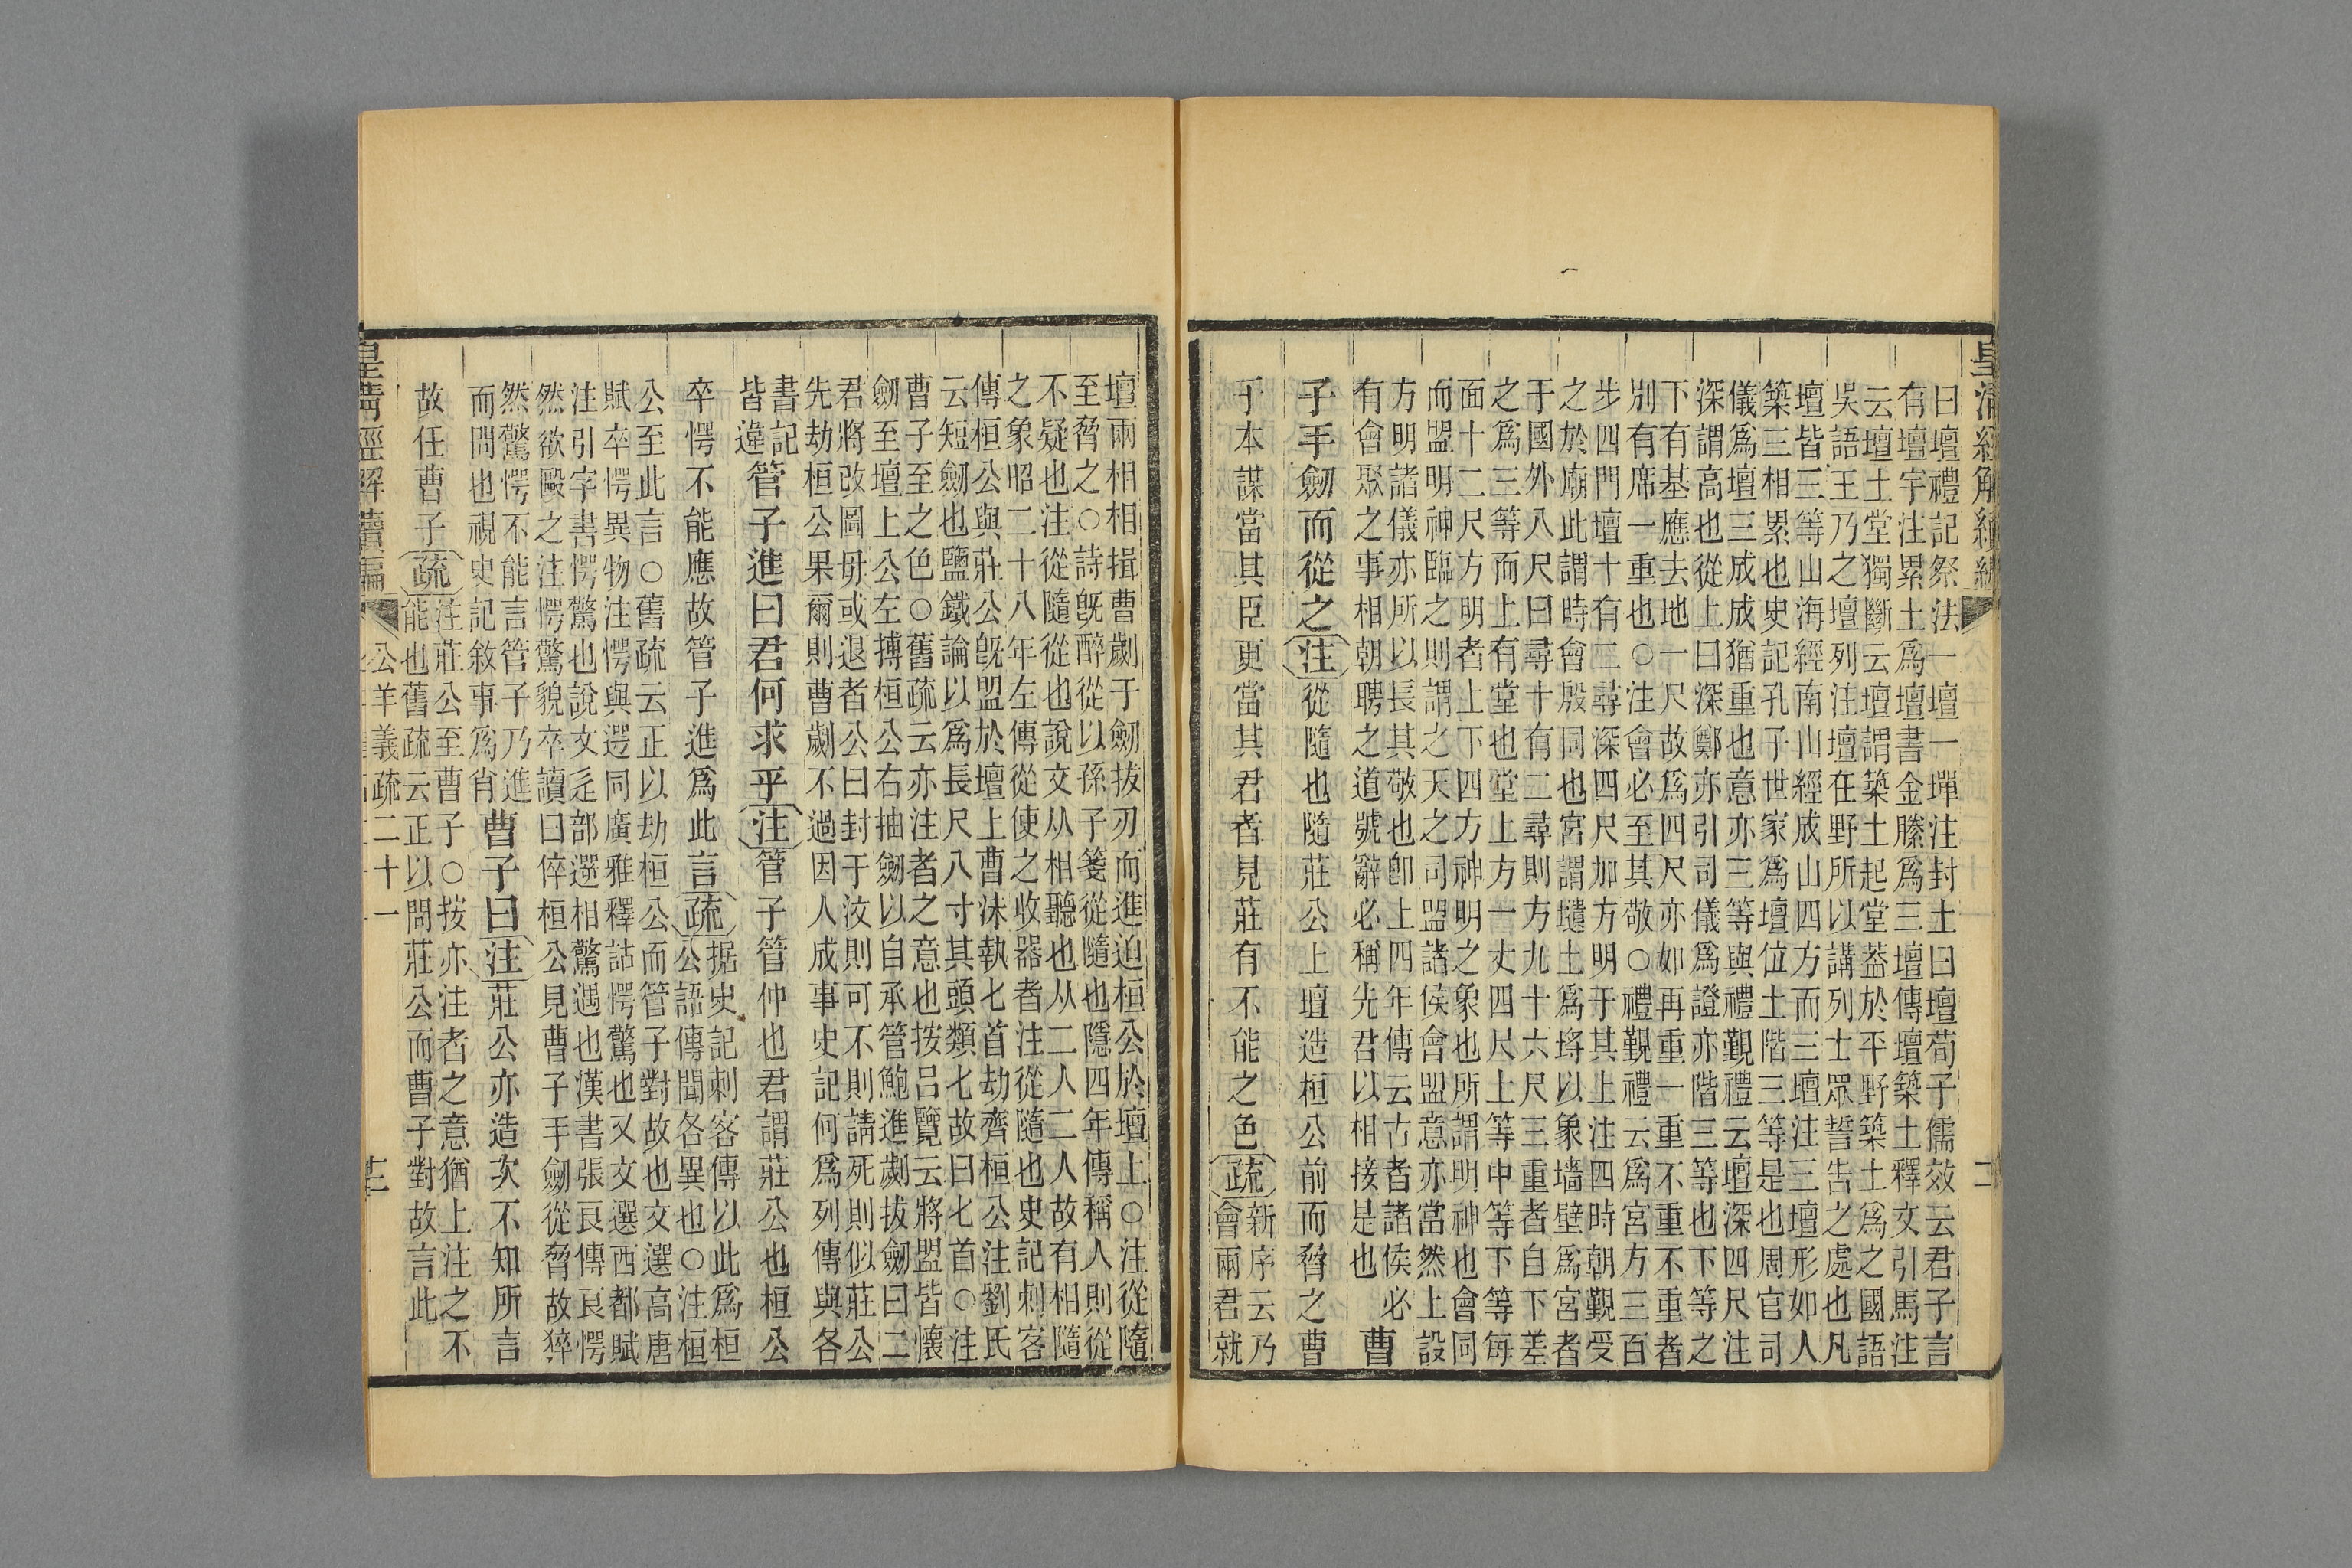 皇清經解續編
二
曰壇禮記祭法一壇一墠注封土曰壇荀子儒效云君子言
有壇宇注累土爲壇書金縢爲三壇傳壇築土釋文引馬注
云壇土堂獨斷云壇謂築土起堂葢於平野築土爲之國語
吳語王乃之壇列注壇在野所以講列士眾誓告之處也凡
壇皆三等山海經南山經成山四方而三壇注三壇形如人
築三相累也史記孔子世家爲壇位土階三等是也周官司
儀爲壇三成成猶重也意亦三等與禮觀禮云壇深四尺注
深謂高也從上曰深鄭亦引司儀爲證亦階三等也下等之
下有基應去地一尺故爲四尺亦如再重一重不重不重者
別有席一重也○注會必至其敬○禮覲禮云爲宮方三百
步四門壇十有二尋深四尺加方明于其上注四時朝覲受
之於廟此謂時會殷同也宮謂壝土爲埓以象墻壁爲宮者
于國外八尺曰尋十有二尋則方九十六尺三重者自下差
之爲三等而上有堂也堂上方一丈四尺上等中等下等每
面十二尺方明者上下四方神明之象也所謂明神也會同
而盟明神臨之則謂之天之司盟諸侯會盟意亦當然上設
方明諸儀亦所以長其敬也卽上四年傳云古者諸侯必
有會聚之事相朝聘之道號辭必稱先君以相接是也
曹
子手劒而從之注從隨也隨莊公上壇造桓公前而脅之曹
子本謀當其臣更當其君者見莊有不能之色疏
新序云乃
會兩君就
壇兩相相揖曹劌于劒拔刃而進迫桓公於壇上○注從隨
至脅之○詩旣醉從以孫子箋從隨也隱四年傳稱人則從
不疑也注從隨從也說文从相聽也从二人二人故有相隨
之象昭二十八年左傳從使之收器者注從隨也史記刺客
傳桓公與莊公旣盟於壇上曹沬執匕首劫齊桓公注劉氏
云短劒也鹽鐵論以爲長尺八寸其頭類匕故曰匕首○注
曹子至之色○舊疏云亦注者之意也按呂覽云將盟皆懷
劒至壇上公左摶桓公右抽劒以自承管鮑進劌拔劒曰二
君將改圖毋或退者公曰封于汶則可不則請死則似莊公
先劫桓公果爾則曹劌不過因人成事史記何爲列傳與各
書記
皆違
管子進曰君何求乎注管子管仲也君謂莊公也桓公
卒愕不能應故管子進爲此言疏
据史記刺客傳以此爲桓
公語傳聞各異也○注桓
公至此言○舊疏云正以劫桓公而管子對故也文選高唐
賦卒愕異物注愕與遌同廣雅釋詁愕驚也又文選西都賦
注引字書愕驚也說文辵部遻相驚遇也漢書張良傳良愕
然欲毆之注愕驚貌卒讀曰倅桓公見曹子手劒從脅故猝
然驚愕不能言管子乃進
而問也視史記敘事爲肖
曹子曰注莊公亦造次不知所言
故任曹子疏
注莊公至曹子○按亦注者之意猶上注之不
能也舊疏云正以問莊公而曹子對故言此
公羊義疏二十一
皇清經解續編